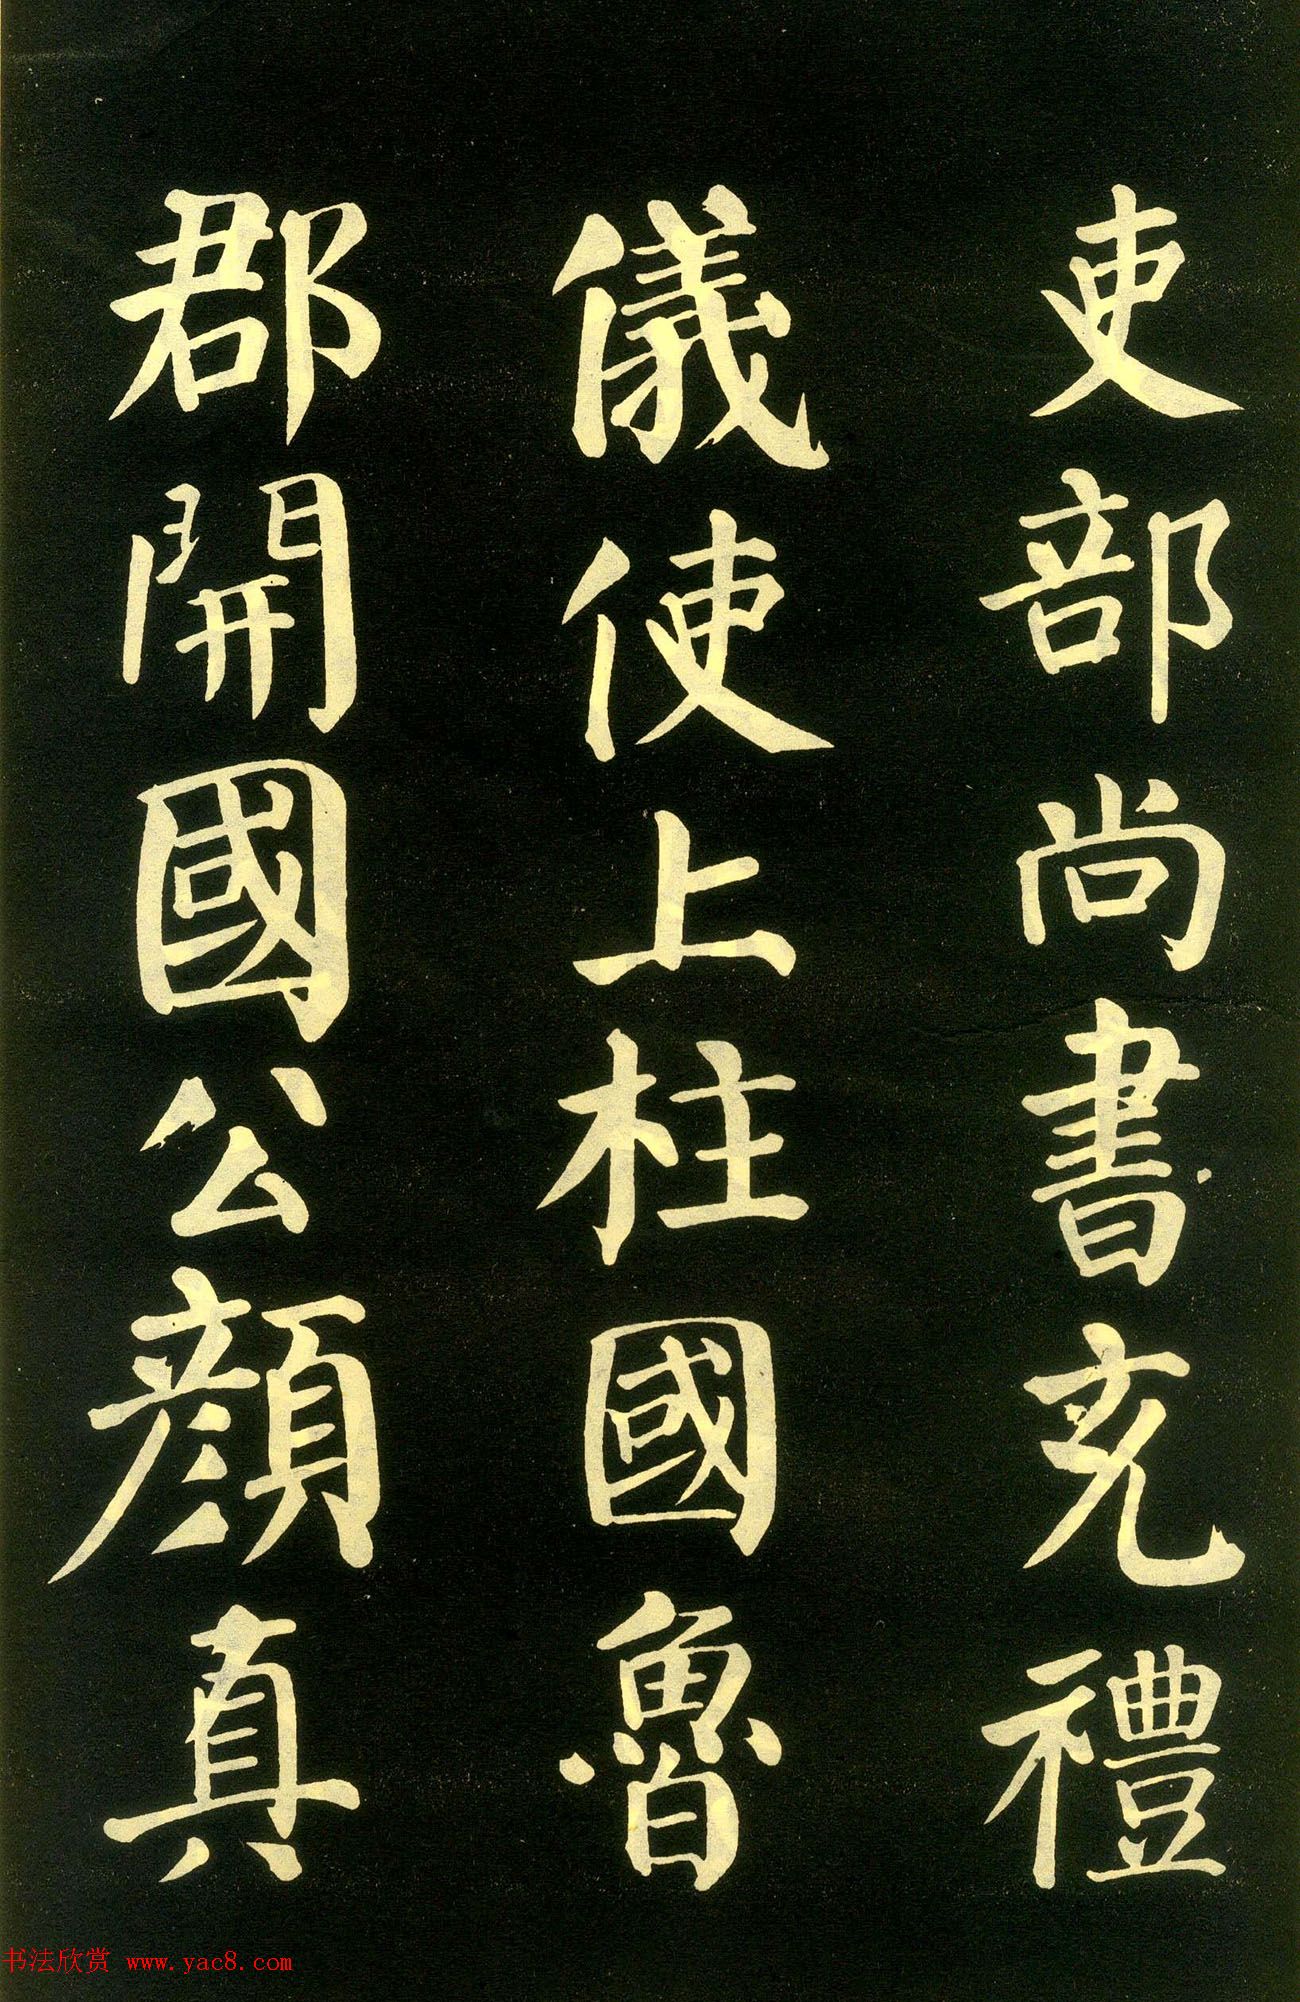 吏部尚書充禮
儀使上柱國魯
郡開國公顔真
书法欣赏 www.yac8.com